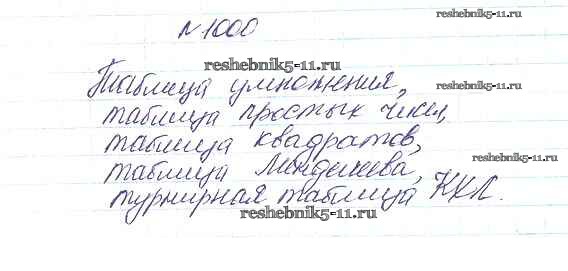 №1000
reshebnik5-11.ru
reshebnik5-11.ru
Таблица умножения,
reshebnik5-11.ru
таблица простых чисел,
таблица квадратов,
таблица Менделеева,
reshebnik5-11.ru
турнирная таблица КХЛ.
reshebnik5-11.ru
reshebnik5-11.ru